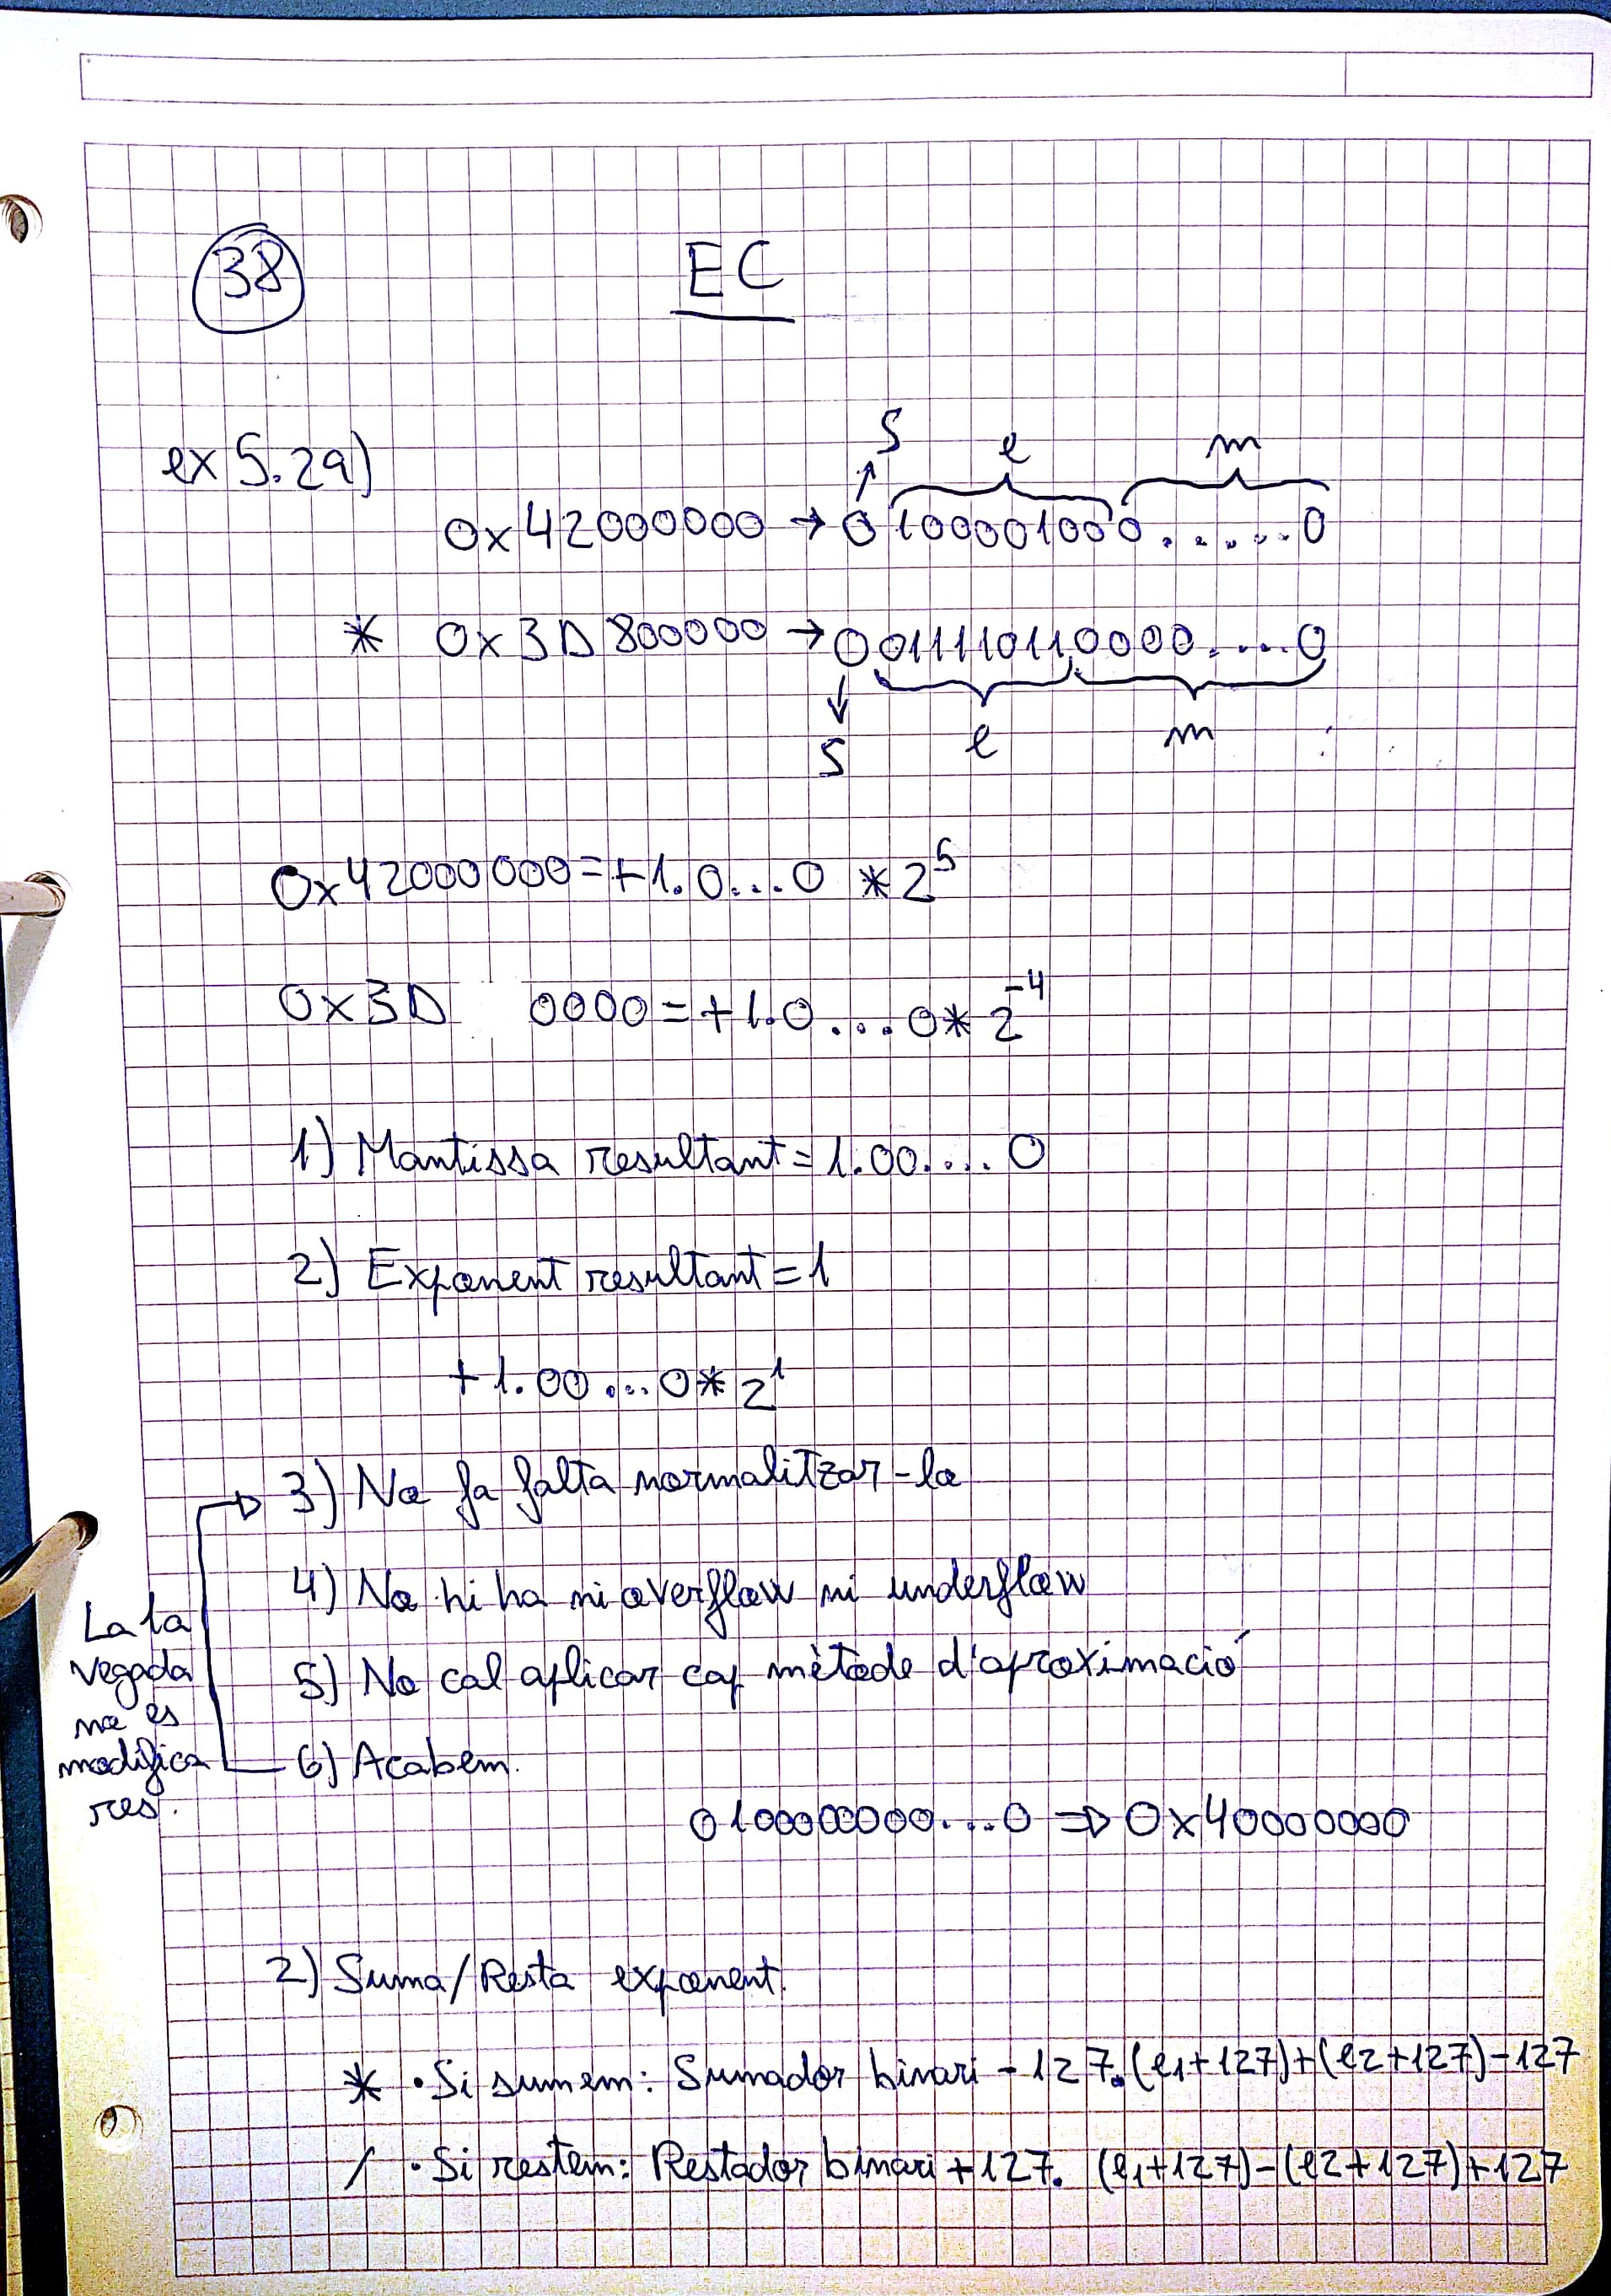 38
EC
ex 5.2a)
S e m
0x42000000 → 0100001000......0
* 0x3D800000 → 0011110110000....0
S e m
0x42000000=+1.0...0 *2^5
0x3D 0000=+1.0...0*2^-4
1) Mantissa resultant=1.00....0
2) Exponent resultant=1
+1.00...0*2^1
3) No fa falta normalitzar-la
4) No hi ha ni overflow ni underflow
5) No cal aplicar cap mètode d'aproximació
6) Acabem.
La 1a
vegada
no es
modifica
res.
0100000000...0 ⇒ 0x40000000
2) Suma/Resta exponent.
* • Si sumem: Sumador binari - 127. (e1+127)+(e2+127)-127
/ • Si restem: Restador binari +127. (e1+127)-(e2+127)+127